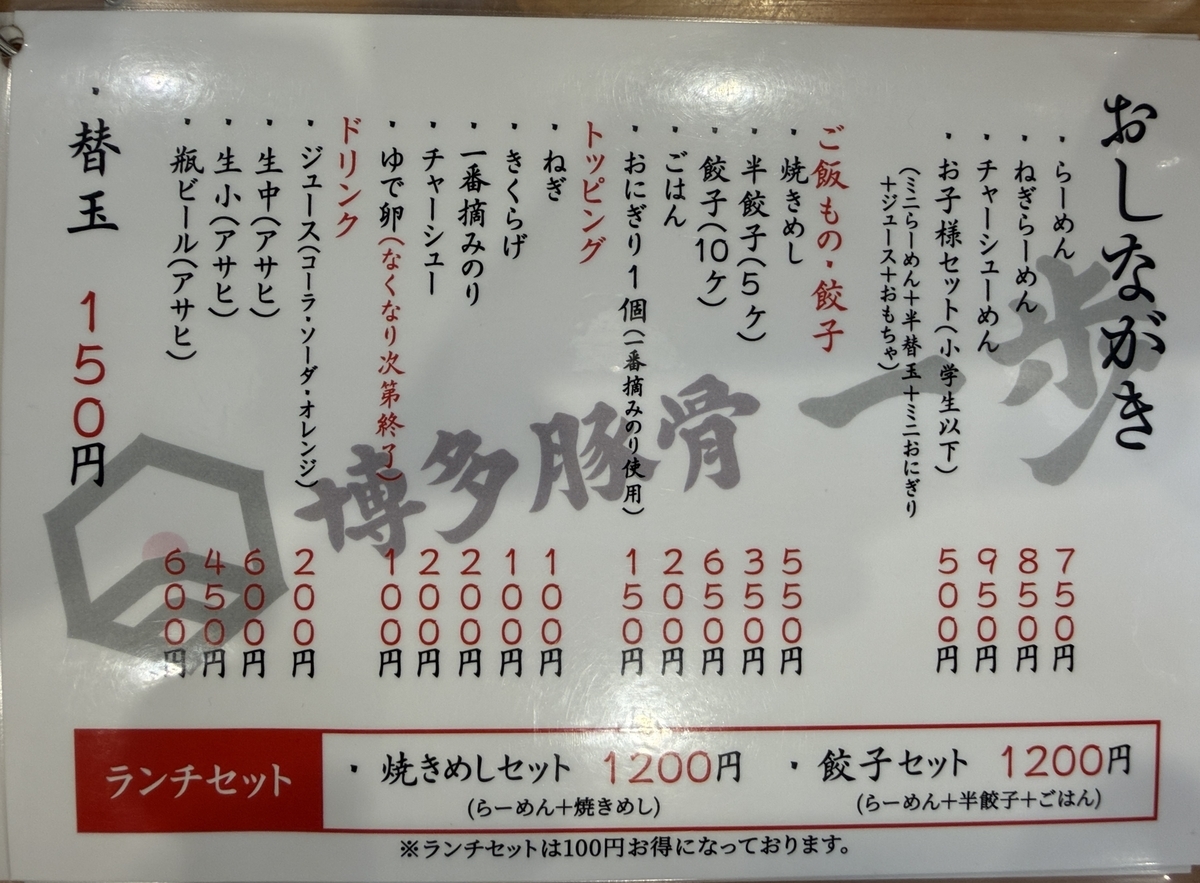 おしながき
・らーめん 750円
・ねぎらーめん 850円
・チャーシューめん 950円
・お子様セット(小学生以下) 500円
(ミニらーめん+半替玉+ミニおにぎり
+ジュース+おもちゃ)
ご飯もの・餃子
・焼きめし 550円
・半餃子(5ヶ) 350円
・餃子(10ヶ) 650円
・ごはん 200円
・おにぎり1個(一番摘みのり使用) 150円
トッピング
・ねぎ 100円
・きくらげ 100円
・一番摘みのり 200円
・チャーシュー 200円
・ゆで卵(なくなり次第終了) 100円
ドリンク
・ジュース(コーラ・ソーダ・オレンジ) 200円
・生中(アサヒ) 600円
・生小(アサヒ) 450円
・瓶ビール(アサヒ) 600円
・替玉 150円
博多豚骨 一歩
ランチセット
・焼きめしセット 1200円
(らーめん+焼きめし)
・餃子セット 1200円
(らーめん+半餃子+ごはん)
※ランチセットは100円お得になっております。